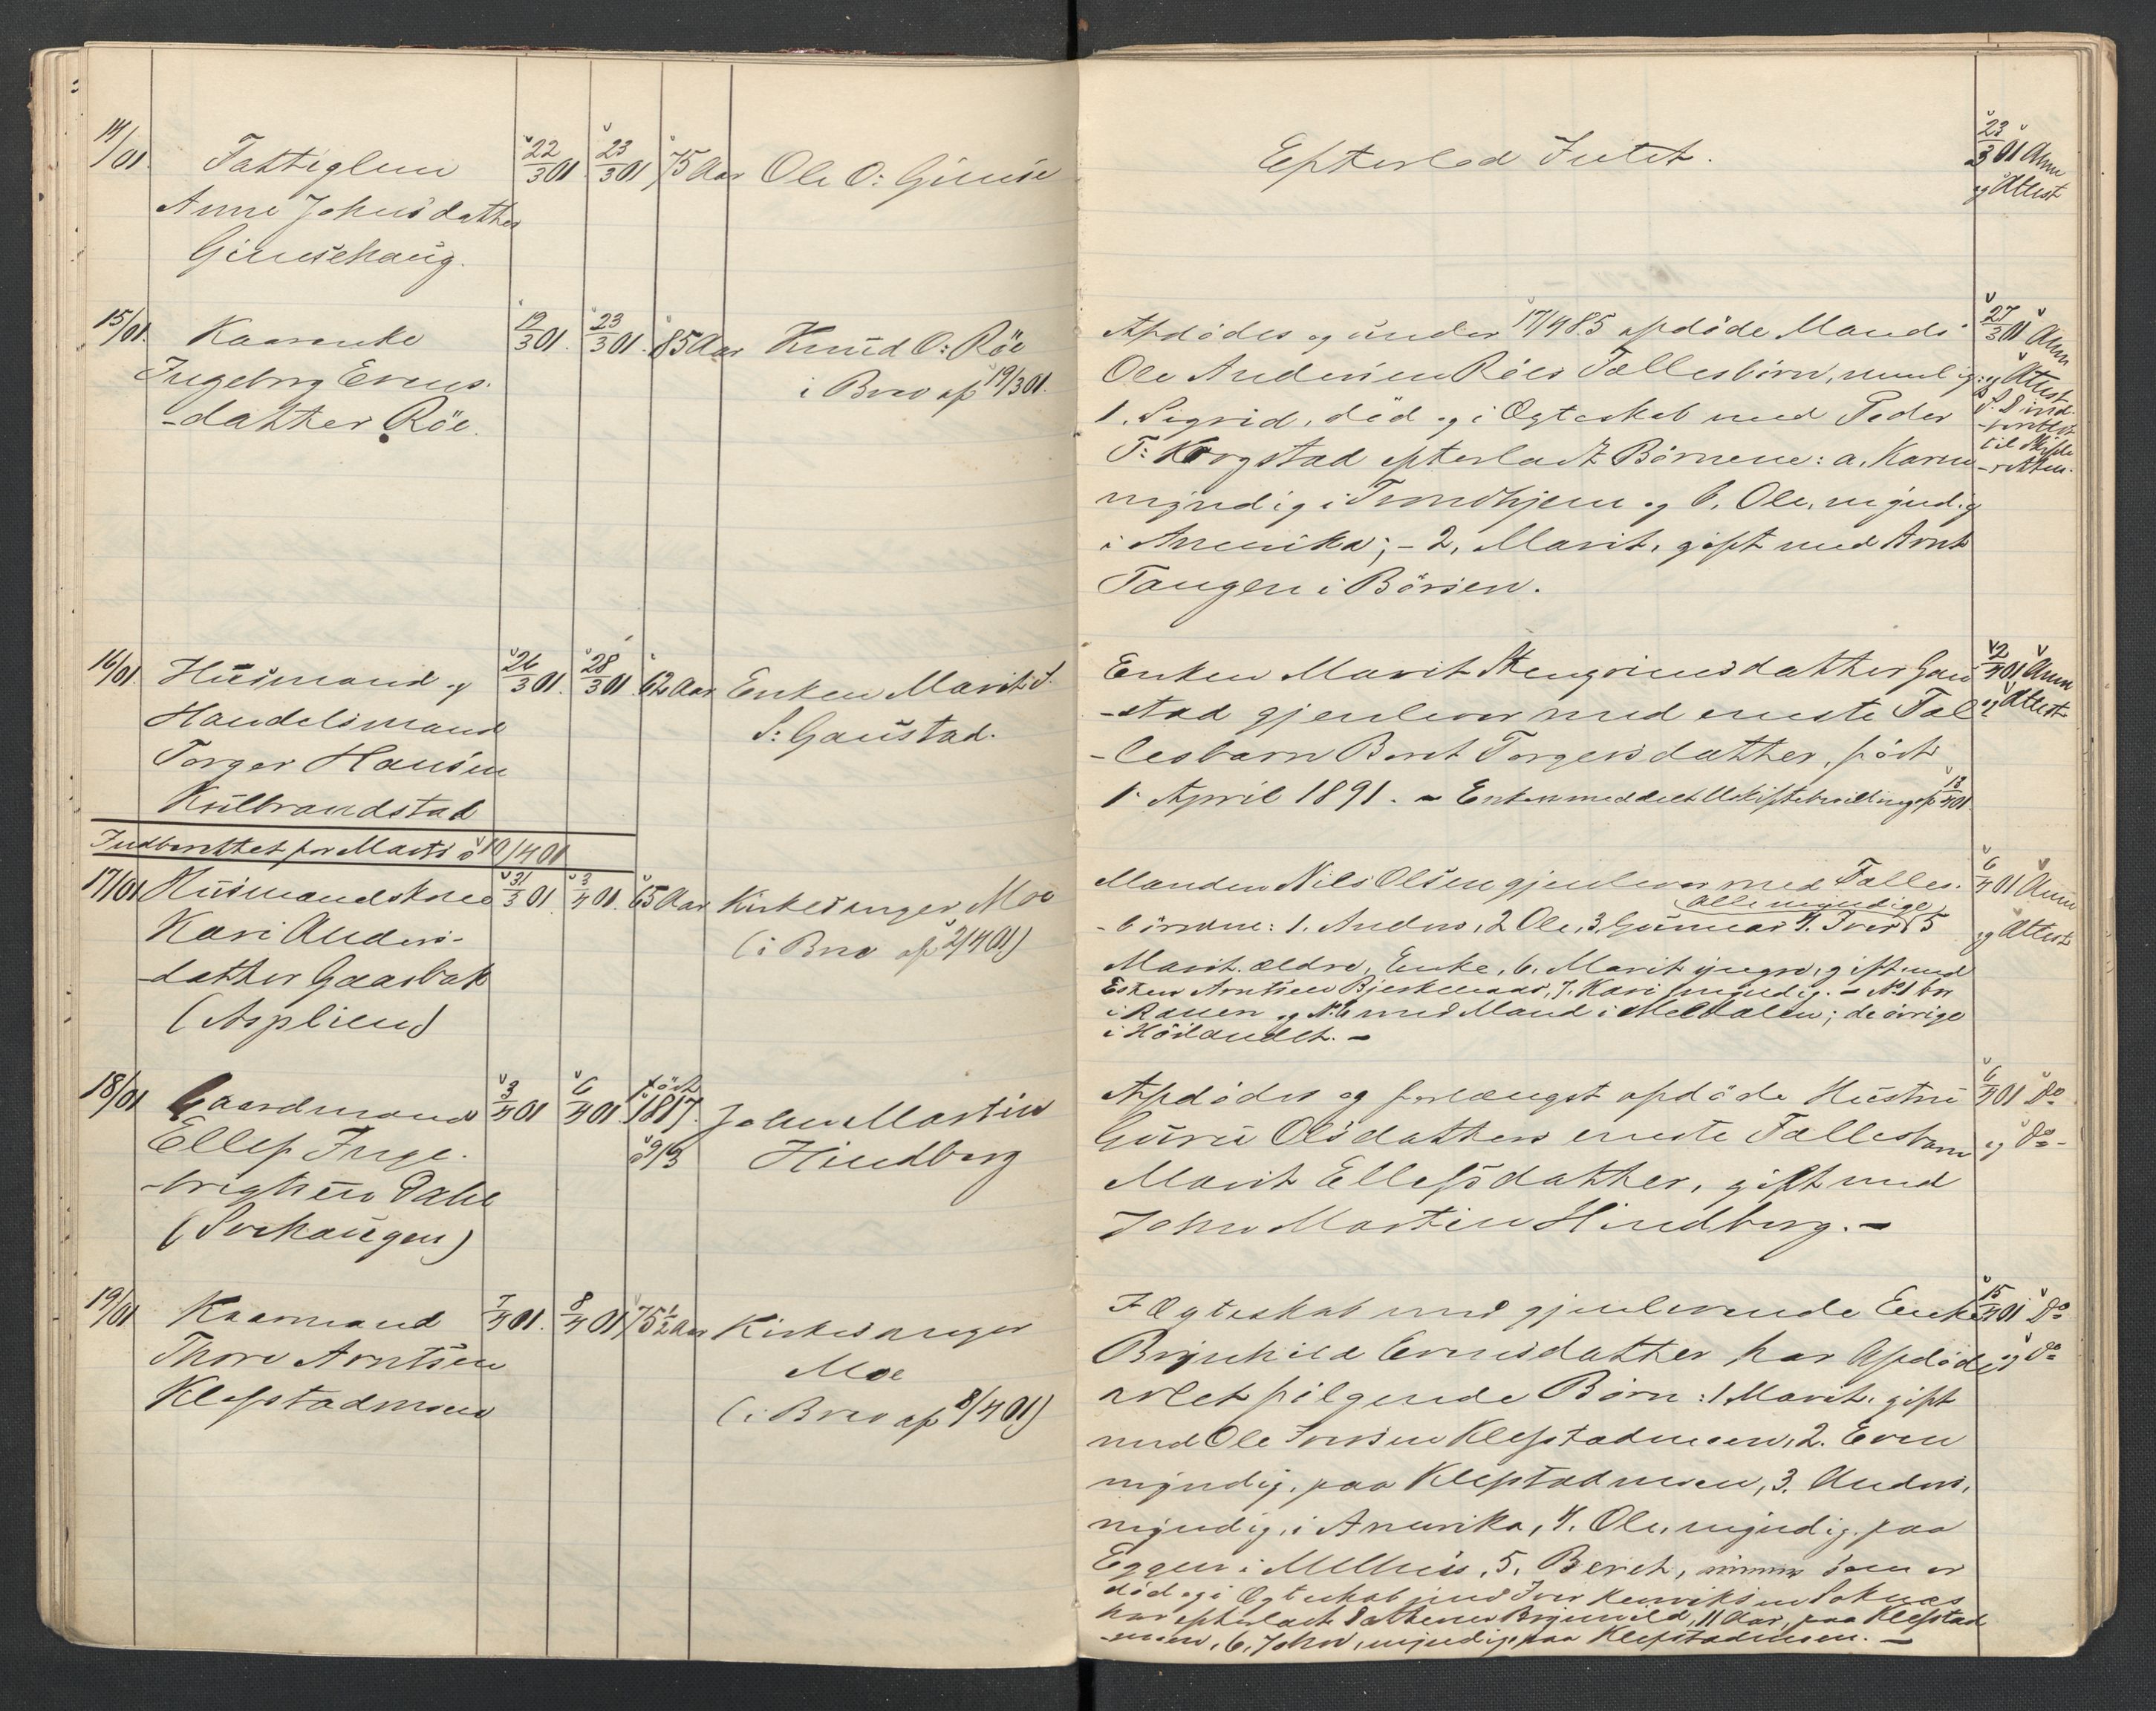 14/01. Fattiglem 22/3 01 23/3 01 75 Aar Ole O: Gimse
Anne Johnsdatter
Gimsehaug.
Efterlod Intet.
23/3 01 Anm
og Attest
15/01. Kaarenke 19/3 01. 23/3 01. 85 Aar Knud O: Röe
Ingeborg Evens- i Brev af 19/3 01.
-datter Röe.
Afdødes og under 17/4 85 afdøde Mands
Ole Andersen Röes Fællesbörn, nemlig:
1, Sigrid, död og i Ægteskab med Peder
T: Krogstad efterladt Börnene: a, Karen
myndig i Trondhjem og b, Ole, myndig
i Amerika; - 2, Marit, gift med Arnt
Tangen i Börsen.
27/3 01 Anm
og Attest
S. D. ind-
til Skifte-
-retten.
16/01 Husmand og 26/3 01. 28/3 01 62 Aar Enken Marit
Handelsmand S: Gaustad.
Torger Hansen
Kulbrandstad
Enken Marit Stengrimsdatter Gau-
-stad gjenlever med eneste Fæl-
-lesbarn Beret Torgersdatter, födt
1. April 1891. - Enken meddelt Uskiftebevilling af 13/4 01
2/4 01 Anm
og Attest
Indberettet for Marts d 10/4 01
17/01 Husmandskone 31/3 01 3/4 01. 65 Aar Kirkesanger Moe
Kari Anders- (i Brev af 2/4 01)
-datter Gaasbak
(Asplien)
Manden Nils Olsen gjenlever med Fælles-
alle myndige
-börnene: 1, Anders, 2 Ole, 3, Gunnar 4, Iver 5
Marit ældre, Enke, 6, Marit yngre, gift med
Esten Arntsen Bjerkenaas, 7. Kari myndig. - No 1 bor
i og No 6 med Mand i Meldalen; de övrige
i Höilandet. -
6/4 01 Anm
og Attest
18/01 Gaardmand 3/4 01 6/4 01. födt 1817 John Martin
Ellef Inge- 9/3 Hindberg
-brigtsen Dahl
(Svehaugen)
Afdødes og forlængst afdøde Hustru
Guru Olsdatters eneste Fællesbarn
Marit Ellefsdatter, gift med
John Martin Hindberg. -
6/4 01 Do
og Do -
19/01 Kaarmand 7/4 01. 8/4 01 75½ Aar Kirkesanger
Thore Arntsen Moe
Klefstadmoen (i Brev af 8/4 01)
I Ægteskab med gjenlevende Enke
Brynhild Evensdatter har Afdøde
avlet fölgende Börn: 1 Marit, gift
med Ole Iversen Klefstadmoen, 2. Even
myndig, paa Klefstadmoen, 3. Anders,
myndig, i Amerika, 4, Ole, myndig, paa
Eggen i Melhus, 5, Beret, som er
död og i Ægteskab med Iver Henriksen Soknæs
har efterladt Datteren Brynhild, 11 Aar, paa Klefstad
-moen, 6, John, myndig paa Klefstadmoen. -
15/4 01 Do
og Do